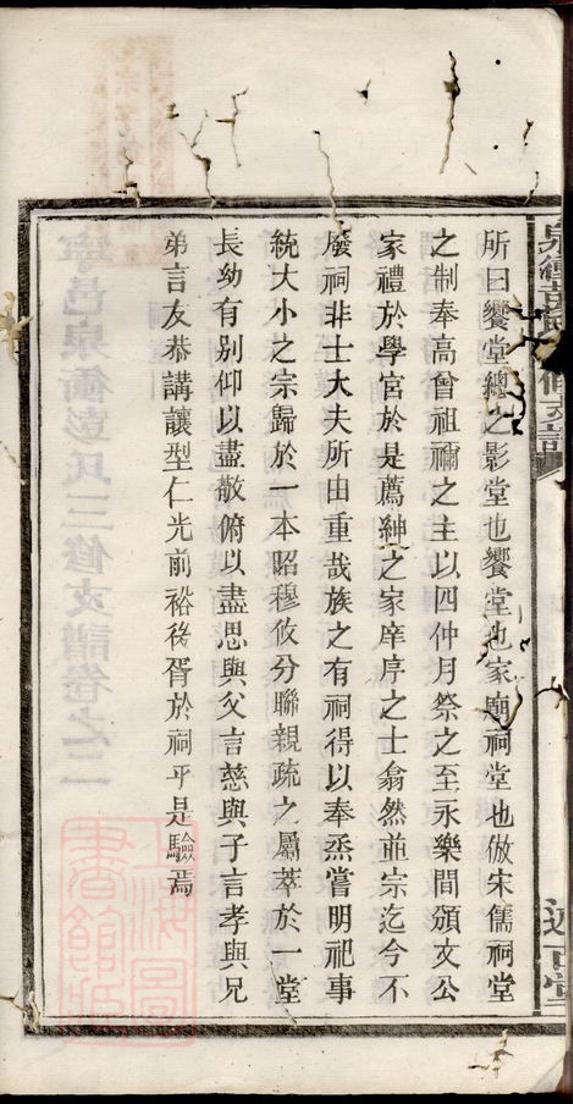 所曰饗堂總之影堂也饗堂也家廟祠堂也倣宋儒祠堂
之制奉高曾祖禰之主以四仲月祭之至永樂間頒文公
家禮於學宮於是薦紳之家庠序之士翕然並宗迄今不
廢祠非士大夫所由重哉族之有祠得以奉烝嘗明祀事
統大小之宗歸於一本昭穆攸分聯親疏之屬萃於一堂
長幼有别仰以盡敬俯以盡思與父言慈與子言孝與兄
弟言友恭講讓型仁光前裕後胥於祠乎是驗焉
寧邑泉衝彭氏三修支譜卷之二